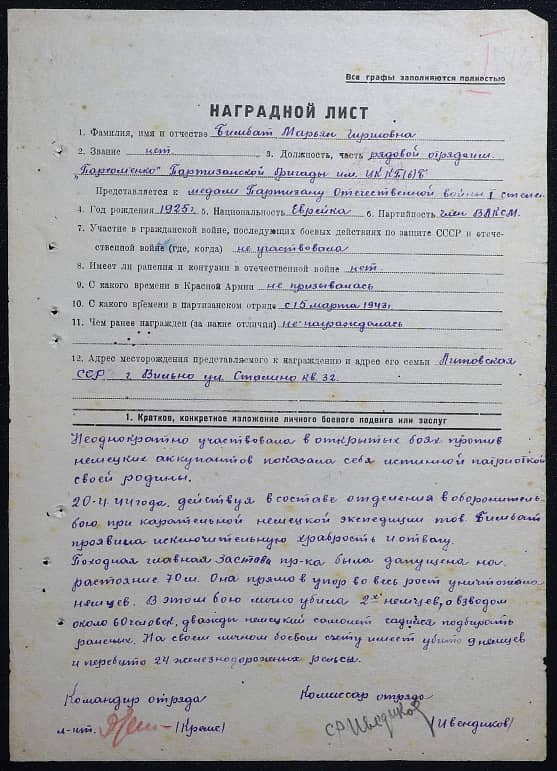 Все графы заполняются полностью
НАГРАДНОЙ ЛИСТ
1. Фамилия, имя и отчество Бимбат Марьян Гиршовна
2. Звание нет. 3. Должность, часть рядовой отряда им.
"Пархоменко" Партизанской бригады им ЦК КП(б)Б
Представляется к медали Партизану Отечественной войны I степени
4. Год рождения 1925 г. 5. Национальность Еврейка 6. Партийность член ВЛКСМ.
7. Участие в гражданской войне, последующих боевых действиях по защите СССР и отече-
ственной войне (где, когда) не участвовала
8. Имеет ли ранения и контузии в отечественной войне нет.
9. С какого времени в Красной Армии не призывалась
10. С какого времени в партизанском отряде с 15 марта 1943 г
11. Чем ранее награжден (за какие отличия) не награждалась
12. Адрес месторождения представляемого к награждению и адрес его семьи Литовская
ССР г Вильно ул Сталино кв. 32.
1. Кратков, конкретное изложение личного боевого подвига или заслуг
Неоднократно участвовала в открытых боях против
немецких аккупантов показала себя истинной патриоткой
своей родины.
20-4 44 года действуя в составе отделения в оборонитель-
бою при карательной немецкой экспедиции тов. Бимбат
проявила исключительную храбрость и отвагу.
Походная главная застава пр-ка была допущена на
растояние 70 м. Она прямо в упор во весь рост уничтожала
немцев. В этом бою лично убила 2х немцев, а взводом
около 60 человек, дважды немецкий самолет садился подбирать
раненых. На своем личном боевом счету имеет убито 9 немцев
и перебито 24 железнодорожных рельсы.
Командир отряда Комиссар отряда
л-нт. (Кремс) (Ивендиков)